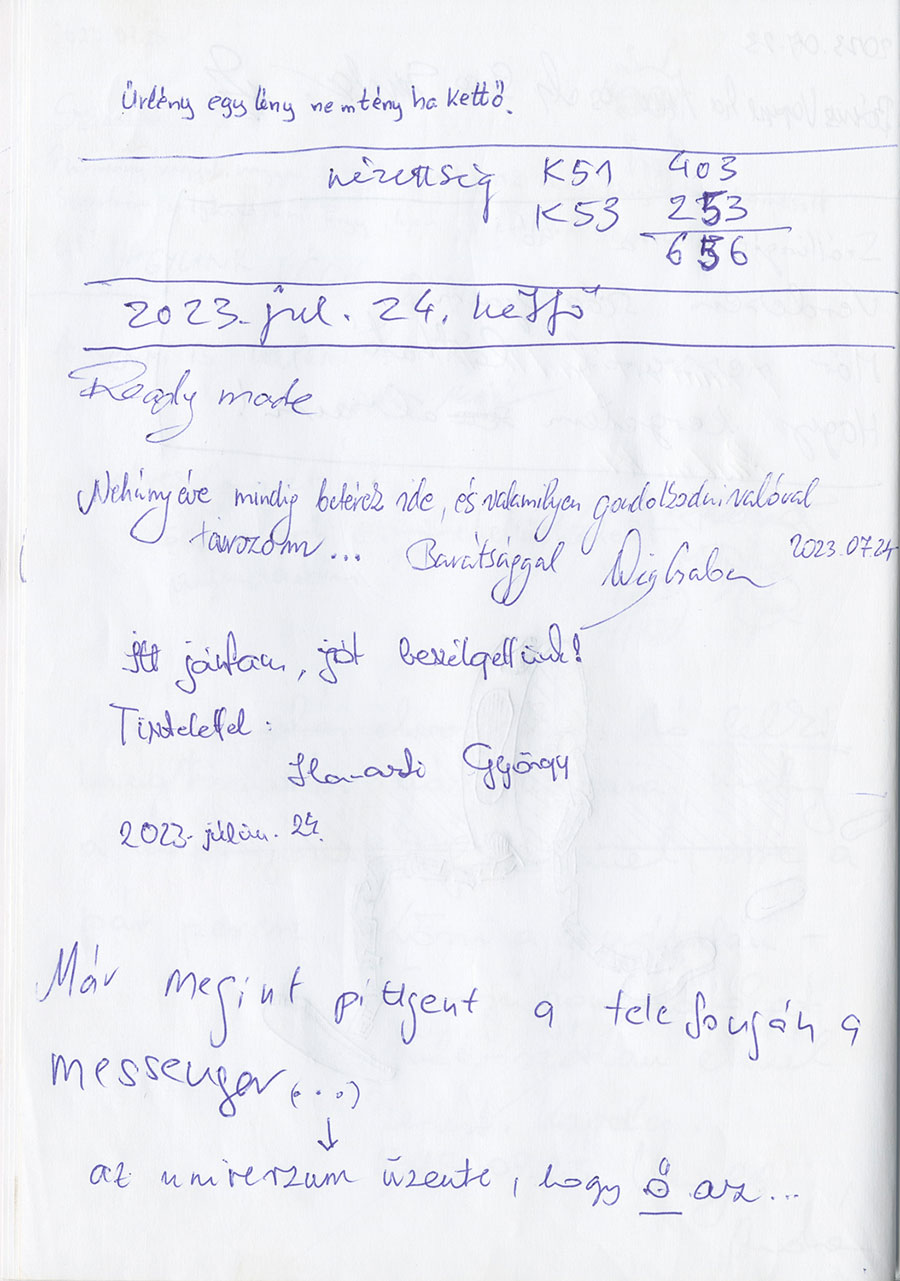 Űrlény egy lény nem tény ha kettő.
nézettség K51 403
K53 253
656
2023. júl. 24. hétfő
Ready made
Néhány éve mindig betérek ide, és valamilyen gondolkodnivalóval
távozom... Barátsággal 2023.07.24
Itt jártam, jót beszélgettünk!
Tisztelettel:
György
2023. július. 24.
Már megint pittyent a telefonján a
messenger (...)
↓
az univerzum üzente, hogy ő az...